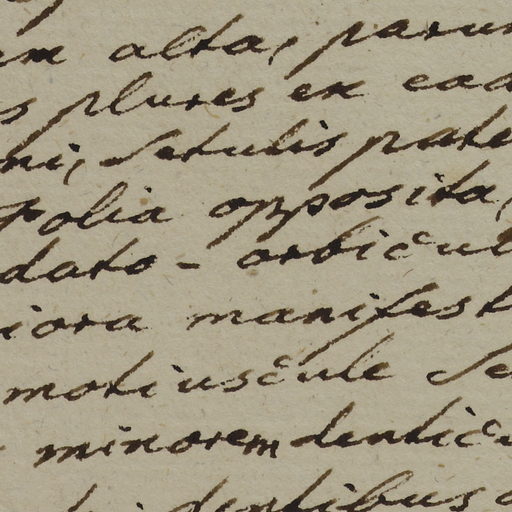 em alta, parum
s plures ex ead
ni, Setulis pate
Folia opposita,
dato - orbicul
iora manifest
motiuscule Se
minorem denticu
dentibus